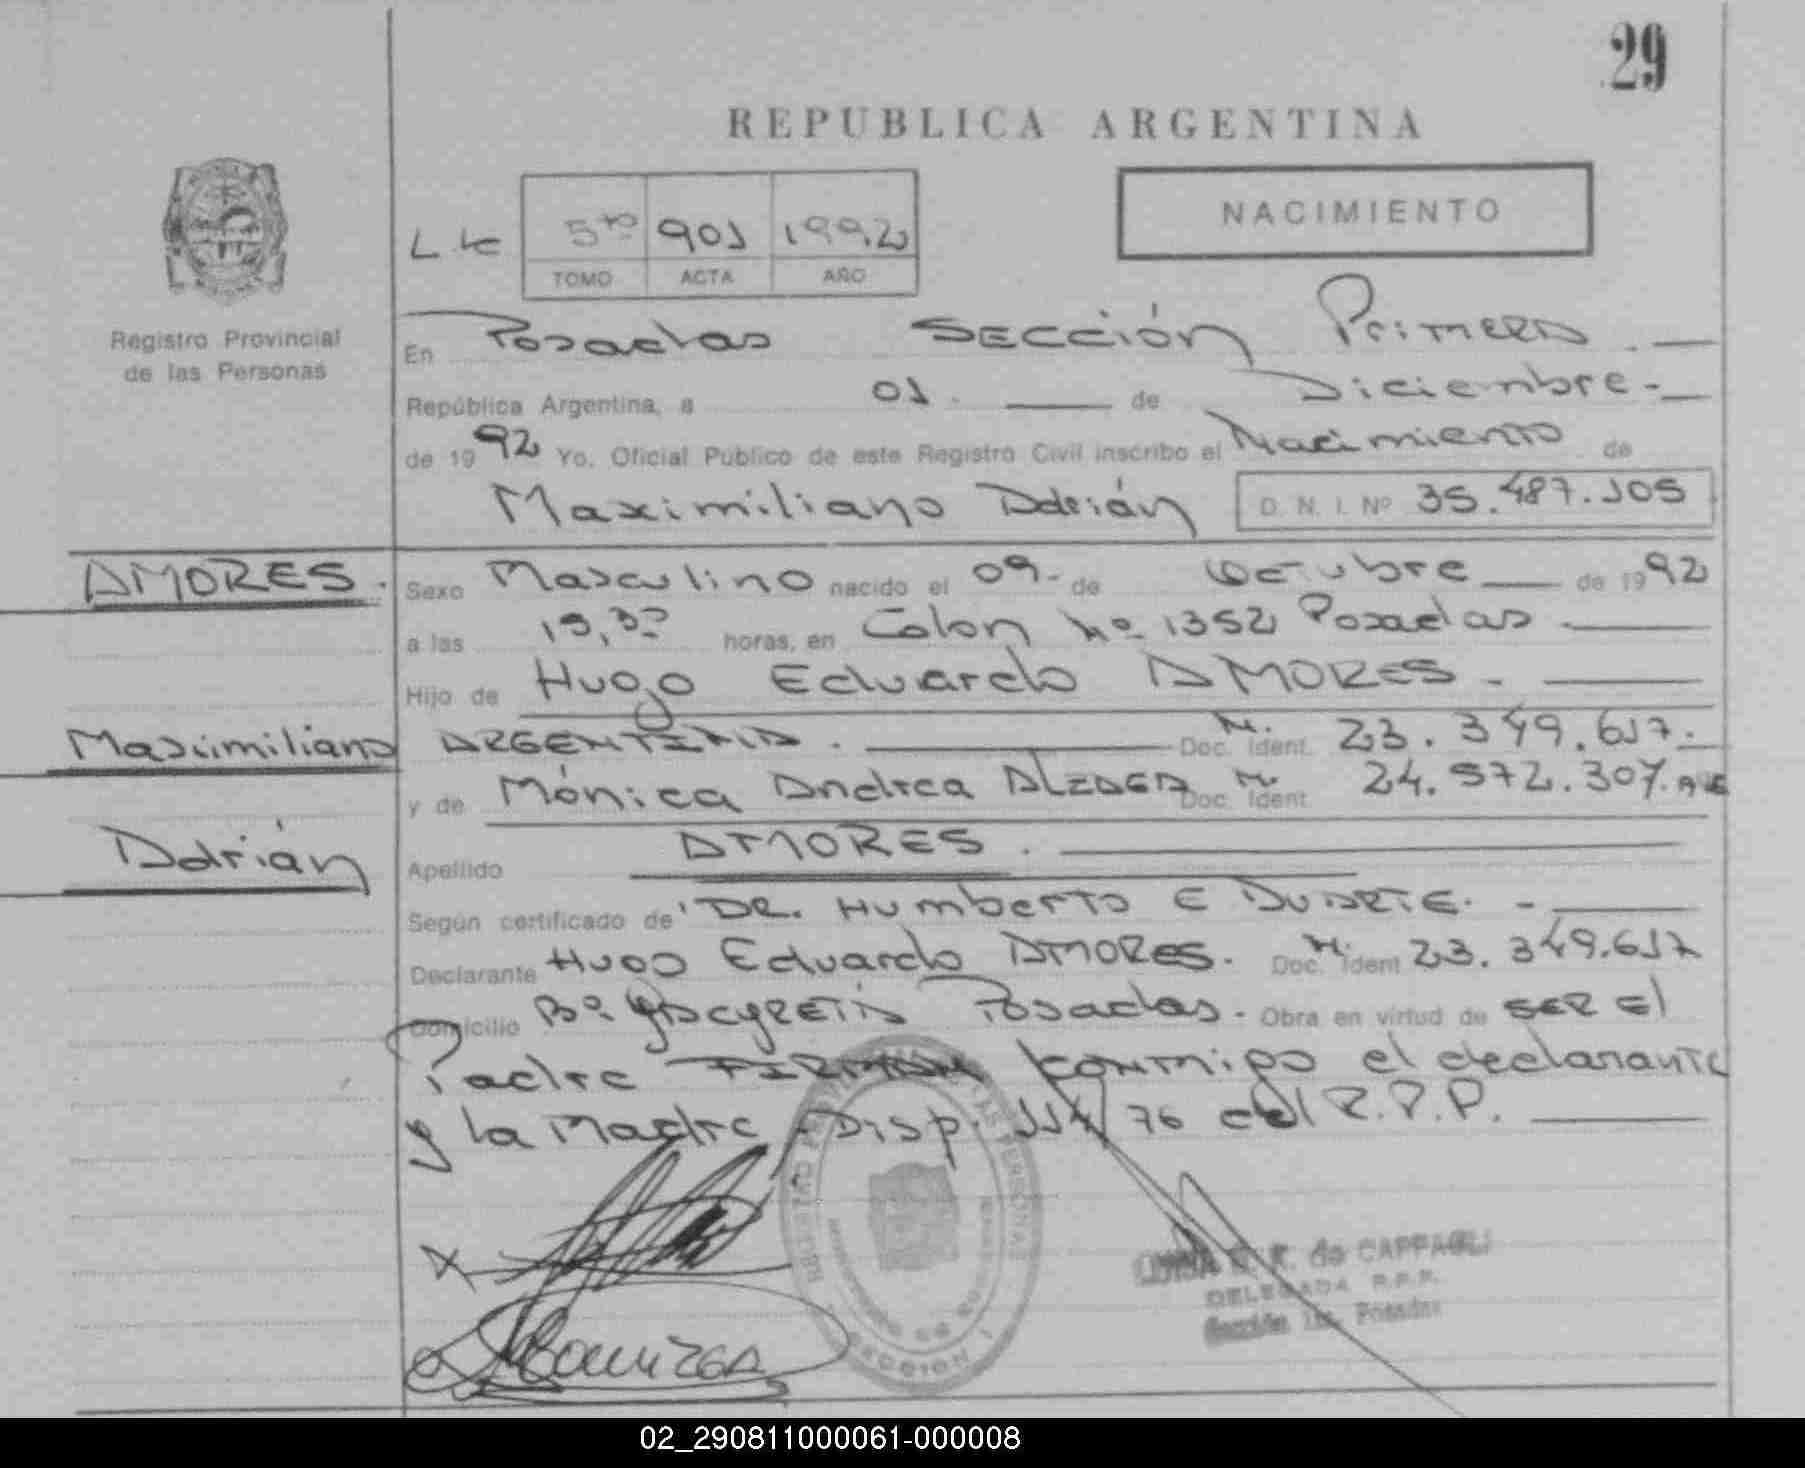 29
REPUBLICA ARGENTINA
NACIMIENTO
5to 901 1992
TOMO ACTA AÑO
Registro Provincial
de las Personas
En Posadas SECCIÓN Primera.
República Argentina, a 01. de Diciembre.-
de 1992 Yo, Oficial Público de este Registro Civil inscribo el Nacimiento de
Maximiliano Adrián D. N. I. Nº 35.487.105
AMORES.
Sexo Masculino nacido el 09- de Octubre de 1992
a las horas, en Colon Nº 1352 Posadas.
Hijo de Hugo Eduardo AMORES.
Maximiliano
ARGENTINA. Doc. Ident. M. 23.349.617.-
y de Mónica Andrea Doc. Ident. M. 24.572.307.
Adrián
Apellido AMORES.
Según certificado de DR. Humberto E DUARTE.-
Declarante Hugo Eduardo AMORES. Doc. Ident. M. 23.349.617
Domicilio Bº YACYRETA Posadas. Obra en virtud de SER El
Padre FIRMAN conmigo el declarante
y la Madre - Disp. 114/76 del R.P.P.
de CAFFAGLI
DELEGADA R.P.P.
Sección 1ra. Posadas
REGISTRO PROVINCIAL DE LAS PERSONAS
SECCION 1
02_290811000061-000008